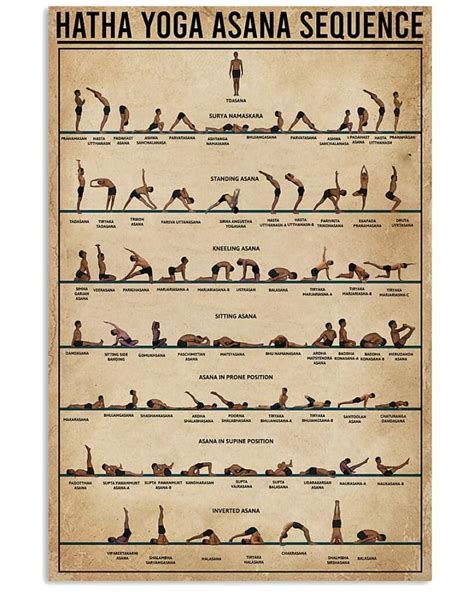 HATHA YOGA ASANA SEQUENCE
TDASANA
SURYA NAMASKARA
PRANAMASAN
HASTA UTTHANASN
PADAHAST ASANA
ASHWA SANCHALANASA
PARVATASANA
ASHTANGA NAMASKARA
BHUJANGASANA
PARVATASANA
ASHWA SANCHALANASA
PADAHAST ASANA
HASTA UTTHANASN
PRANAMASAN
STANDING ASANA
TADASANA
TIRYAKA TADASANA
TRIKON ASANA
PARIVA UTTANASANA
SIRHA ANGUSTHA YOGASANA
HASTA UTTHANASN-A
HASTA UTTHANASN-B
PARIVRTA TRIKONASANA
EKAPADA PRANAMASANA
DRUTA UTKTASANA
KNEELING ASANA
SIMHA GARJANI ASANA
VEERASANA
PARIGHASANA
MARJARIASNA-A
MARJARIASANA-B
USTRASAN
BALASANA
TIRYAKA MARJARIASNA-A
TIRYAKA MARJARIASNA-B
TIRYAKA MARJARIASNA-C
SITTING ASANA
DANDASANA
SITTING SIDE BANDING
GOMUKHSANA
PASCHIMITTAN ASANA
MATSYASANA
BHU NAMANASANA
ARDHA MATSYENDRA ASANA
BADDHA KONASANA-A
BADDHA KONASANA-B
MERUDANDA ASANA
ASANA IN PRONE POSITION
MAKARASANA
BHUJANGASANA
SHASHANKASANA
ARDHA SHALABHASANA
POORNA SHALABHASANA
TIRYAKA BHUJANGASANA-A
TIRYAKA BHUJANGASANA-B
SANTOOLAN ASANA
CHATURANGA DANDASANA
ASANA IN SUPINE POSITION
PADOTTHAN ASANA
SUPTA PAWANMUKT ASANA-A
SUPTA PAWANMUKT ASANA-B
KANDHARASAN
SUPTA VAJRASANA
SUPTA BALASANA
UDARAKARSAN ASANA
NAUKASANA-A
NAUKASANA-B
INVERTED ASANA
VIPAREETKARNI ASANA
SHALAMBHA SARVANG ASANA
HALASANA
TIRYAKA HALASANA
CHAKRASANA
SHALMBHA SIRSHASANA
BALASANA